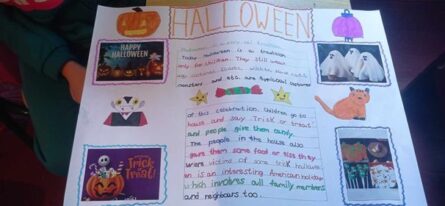 HALLOWEEN
Halloween is a very old tradition.
Today Halloween is a tradition
only for children. They still wear
and etc. are typical costumes
HAPPY
HALLOWEEN
of this celebration. Children go to
house and say "Trick or treat"
and people give them candy.
The people in the house also
gave them some food or else they
were victims of some trick hallowe
en is an interesting American holiday
which involves all family members
and neighbours too.
Trick
or
Treat!